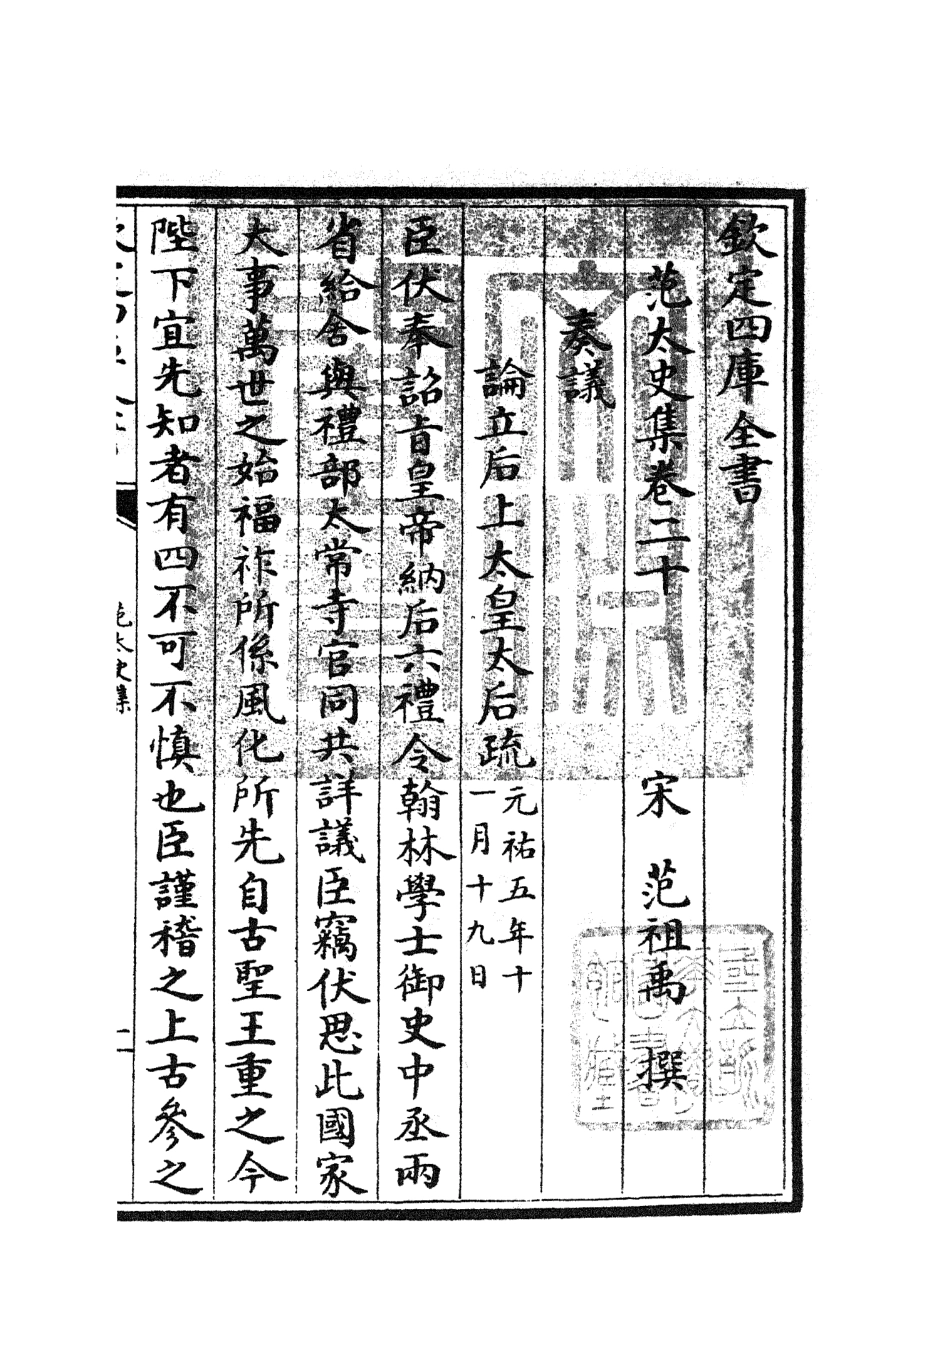 欽定四庫全書
范太史集卷二十
宋　范祖禹　撰
奏議
論立后上太皇太后疏
元祐五年十
一月十九日
臣伏奉詔旨皇帝納后六禮令翰林學士御史中丞兩
省給舍與禮部太常寺官同共詳議臣竊伏思此國家
大事萬世之始福祚所係風化所先自古聖王重之今
陛下宜先知者有四不可不慎也臣謹稽之上古參之
范太史集
一